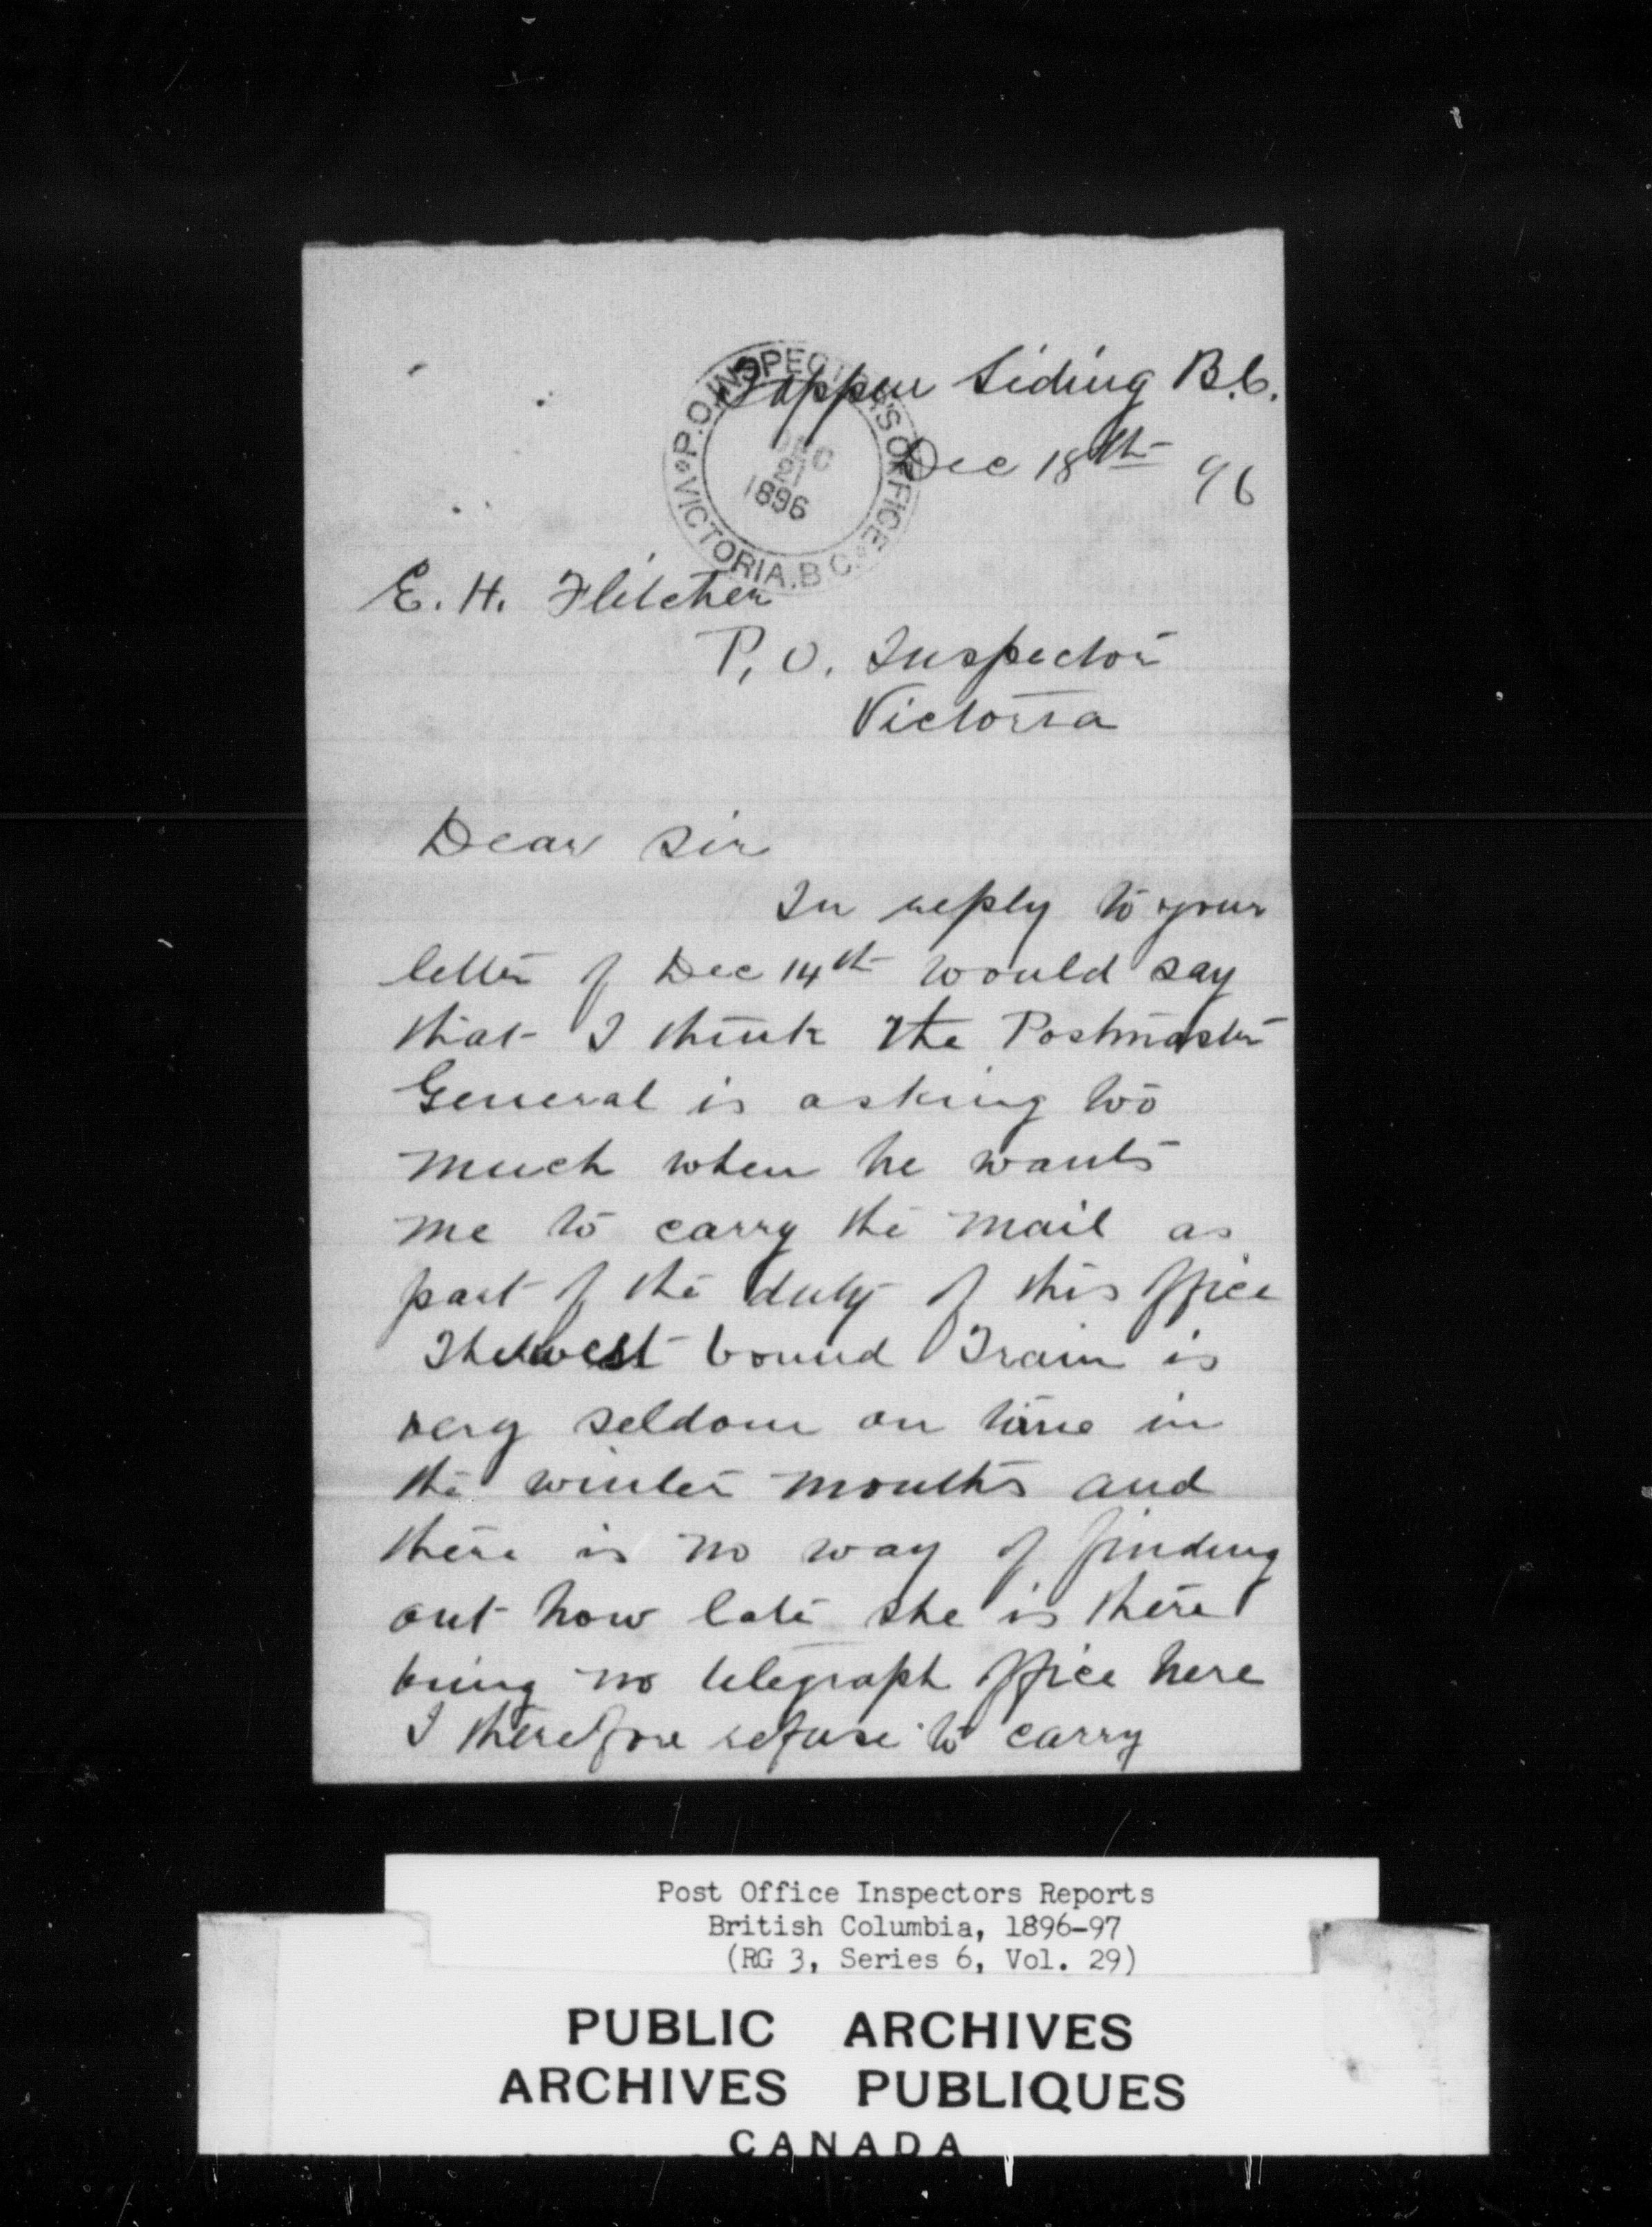 Tappen Siding B.C.
Dec 18th 96
P.O. INSPECTOR'S OFFICE
DEC
21
1896
VICTORIA. B C.
E. H. Fletcher
P. O. Inspector
Victoria
Dear Sir
In reply to your
letter of Dec 14th would say
that I think the Postmaster
General is asking too
much when he wants
me to carry the mail as
part of the duty of this office
The west bound Train is
very seldom on time in
the winter months and
there is no way of finding
out how late she is there
being no telegraph office here
I therefore refuse to carry
Post Office Inspectors Reports
British Columbia, 1896-97
(RG 3, Series 6, Vol. 29)
PUBLIC ARCHIVES
ARCHIVES PUBLIQUES
CANADA